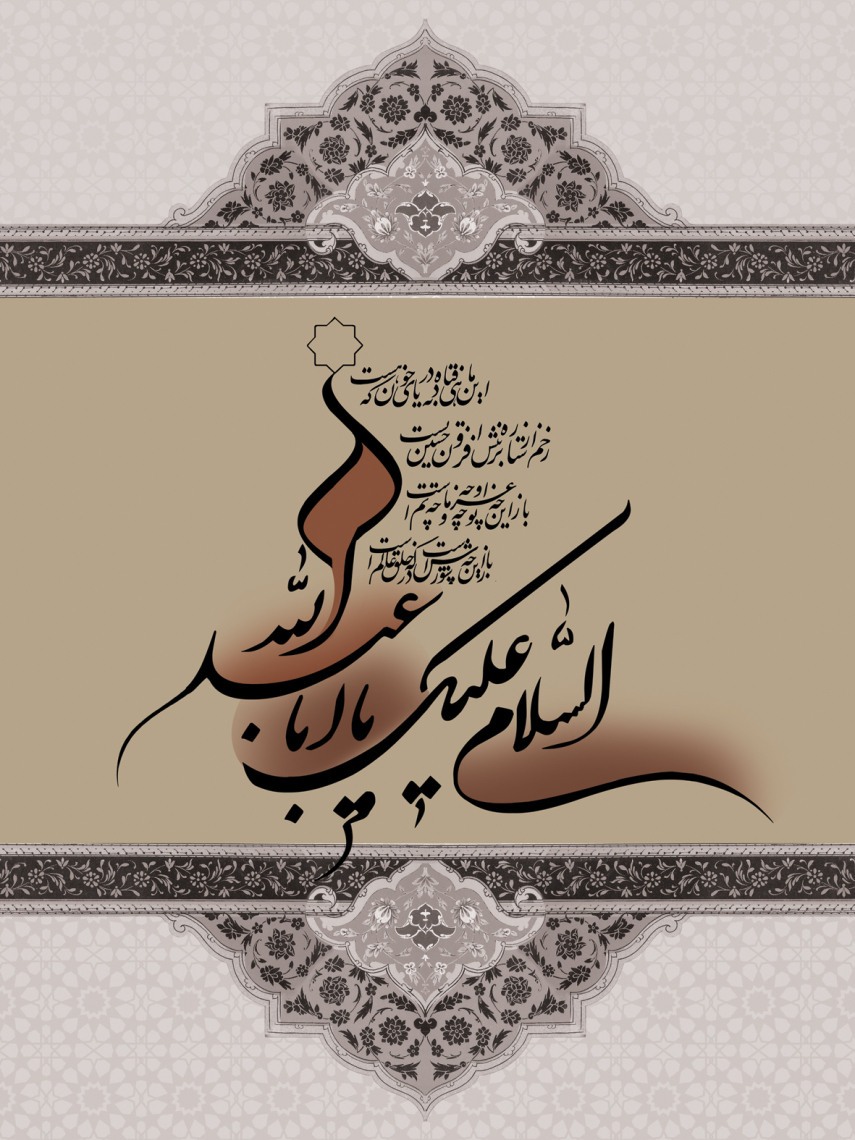 این ماهی فتاده به دریای خون که هست
زخم از ستاره بر تنش افزون حسین است
باز این چه نوحه و چه عزا و چه ماتم است
باز این چه شورش است که در خلق عالم است
السلام علیک یا ابا عبد الله